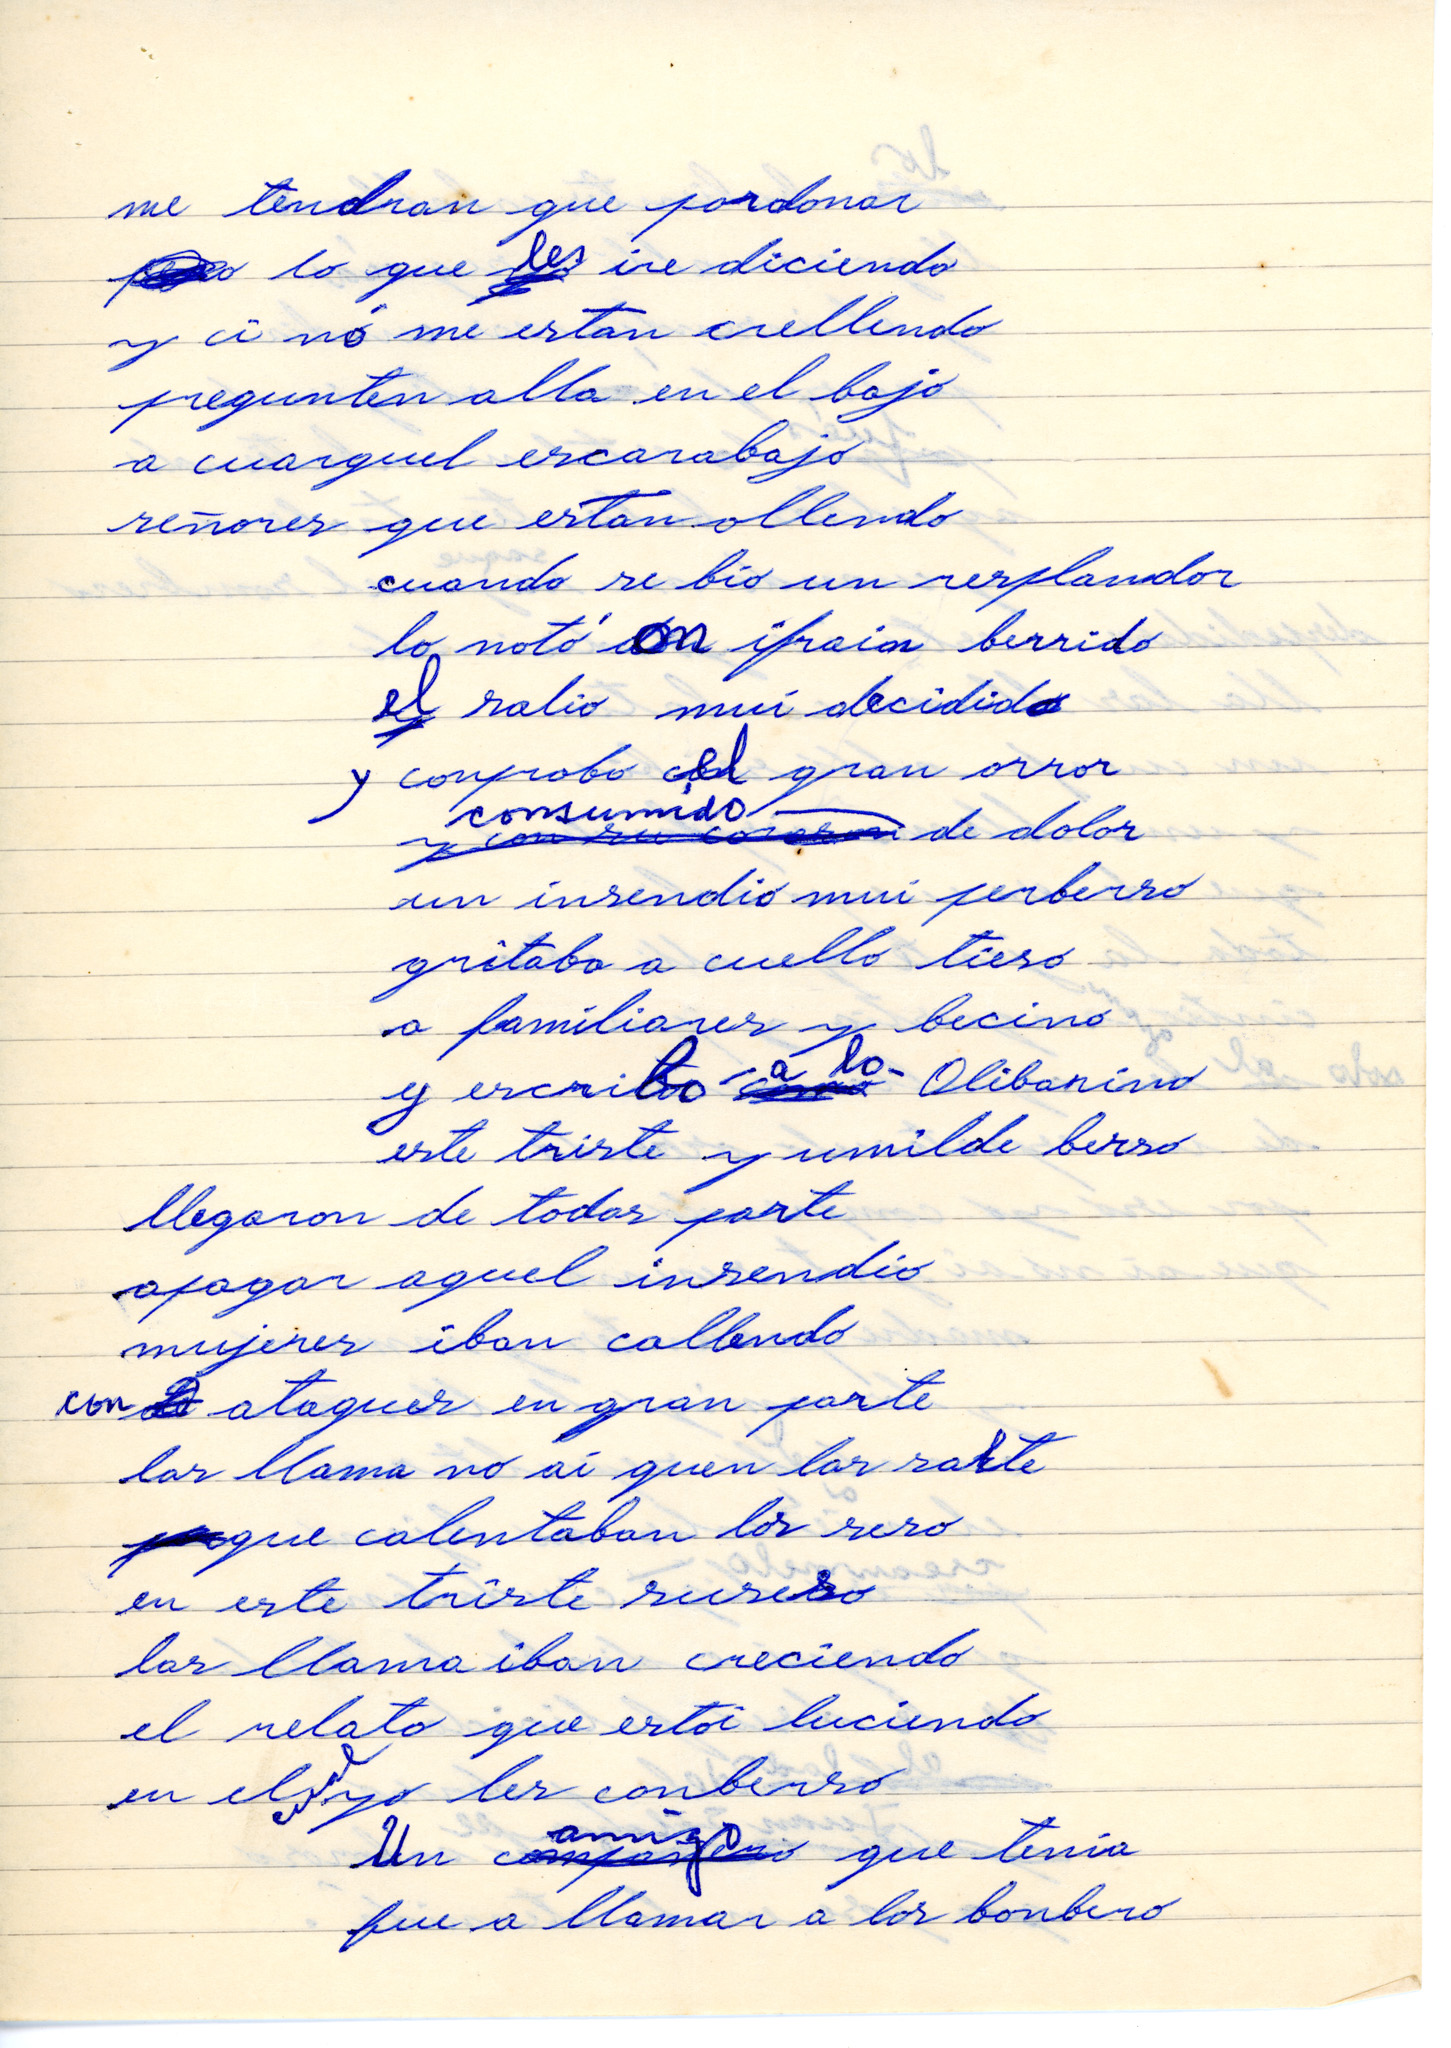 me tendran que pordonar
lo que les ire diciendo
y ci nó me estan crellendo
pregunten alla en el bajo
a cuarquel escarabajo
señores que estan ollendo
cuando se bio un resplandor
lo notó don ifrain berrido
el salio mui decidido
y conprobo el gran orror
consumido de dolor
un insendio mui perberso
gritaba a cuello tieso
a familiares y becino
y escribo a lo Olibarino
este triste y umilde berso
llegaron de todas parte
apagar aquel insendio
mujeres iban callendo
con ataques en gran parte
las llama no ai quen las salte
que calentaban los seso
en este triste suseso
las llama iban creciendo
el relato que estoi luciendo
en el yo les conberso
Un amigo que tenia
fue a llamar a los bonbero